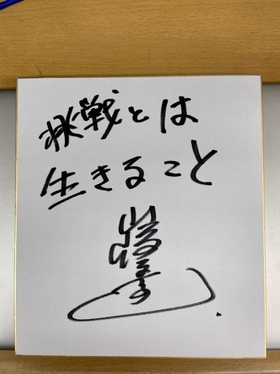 挑戦とは
生きること